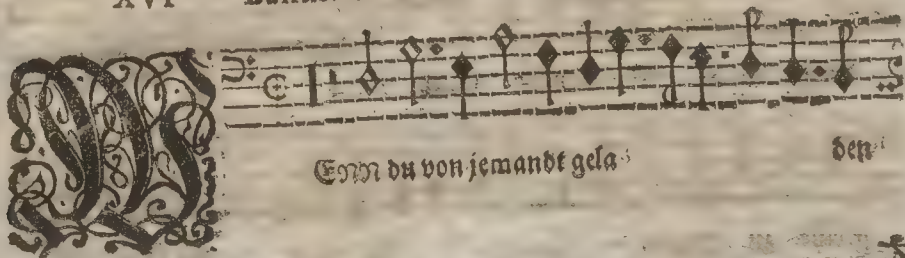 XVI
WEnn du von jemandt gela⸗ den